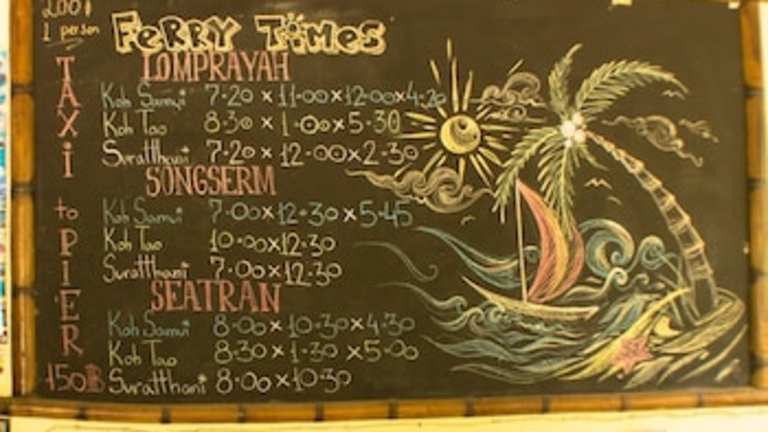 200฿
1 person
FERRY TiMES
TAXi to PiER
150฿
LOMPRAYAH
Koh Samui 7.20 × 11.00 × 12.00 × 4.20
Koh Tao 8.30 × 1.00 × 5.30
Suratthani 7.20 × 12.00 × 2.30
SONGSERM
Koh Samui 7.00 × 12.30 × 5.45
Koh Tao 10.00 × 12.30
Suratthani 7.00 × 12.30
SEATRAN
Koh Samui 8.00 × 10.30 × 4.30
Koh Tao 8.30 × 1.30 × 5.00
Suratthani 8.00 × 10.30